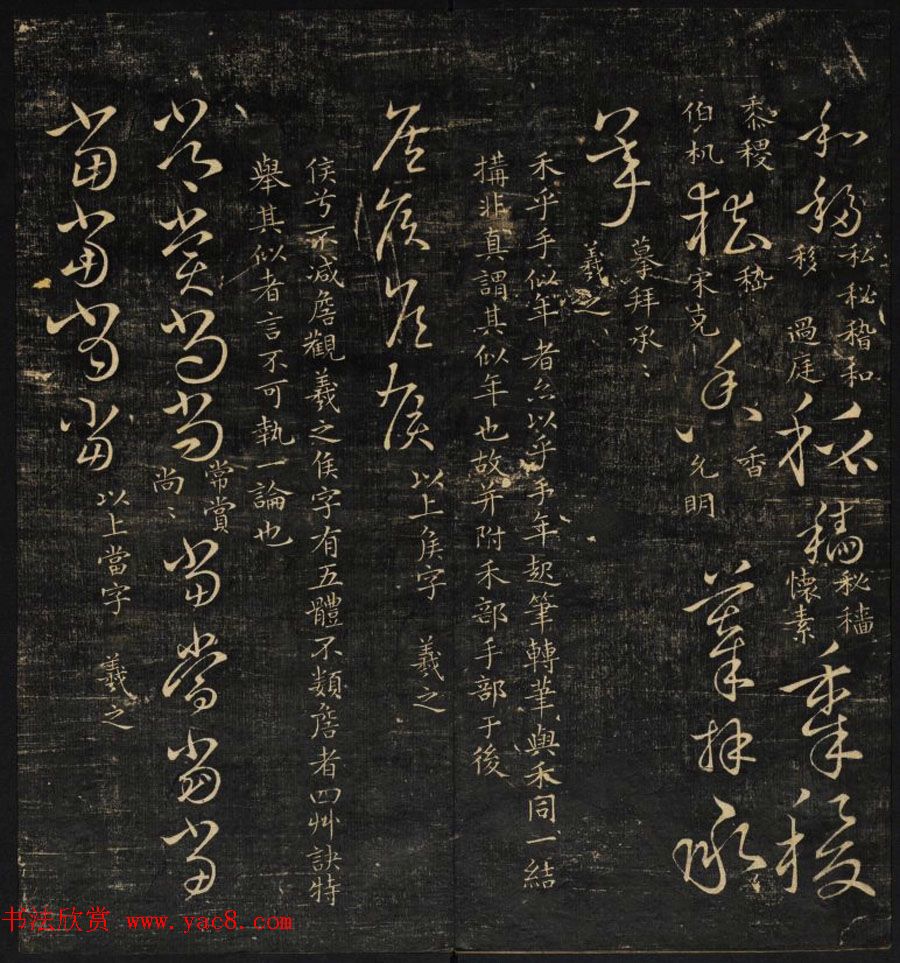 和 移 私秘稽和
移 過庭 稱 穡 秘穡
懷素 黍 稷
黍稷
伯机 嵇 嵇
宋克 香 香
允明 摹拜承
摹拜承〻
羲之〻
禾乎手似年者亦以乎手年起筆轉筆與禾同一結
搆非真謂其似年也故并附禾部手部于後
侯侯侯侯 以上侯字 羲之
侯兮不減詹觀羲之侯字有五體不類詹者四艸訣特
舉其似者言不可執一論也
常賞
尚〻
當當當當
當當當當 以上當字 羲之
书法欣赏 www.yac8.com